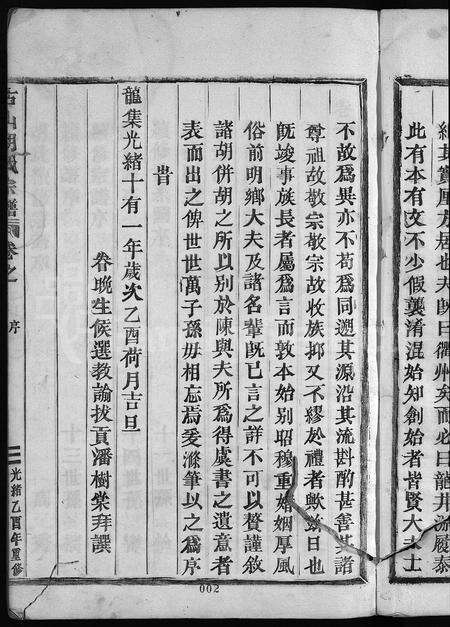 經其實厘方居也夫既曰衢州矣而必曰龍井派履泰
此有本有文不少假襲淆混始知創始者皆賢大夫士
不故爲異亦不苟爲同遡其源沿其流斟酌甚善其諸
尊祖故敬宗敬宗故收族抑又不繆於禮者歟茲日也
旣竣事族長者屬爲言而敦本始别昭穆重婚姻厚風
俗前明鄉大夫及諸名輩旣已言之詳不可以贅謹敘
諸胡併胡之所以别於陳與夫所爲得虞書之遺意者
表而出之俾世世萬子孫毋相忘焉爰滌筆以之爲序
旹
龍集光緒十有一年歲次乙酉荷月吉旦
眷晚生候選教諭拔貢潘樹棠拜譔
古山胡氏宗譜
卷之一
序
光緒乙酉年重修
002